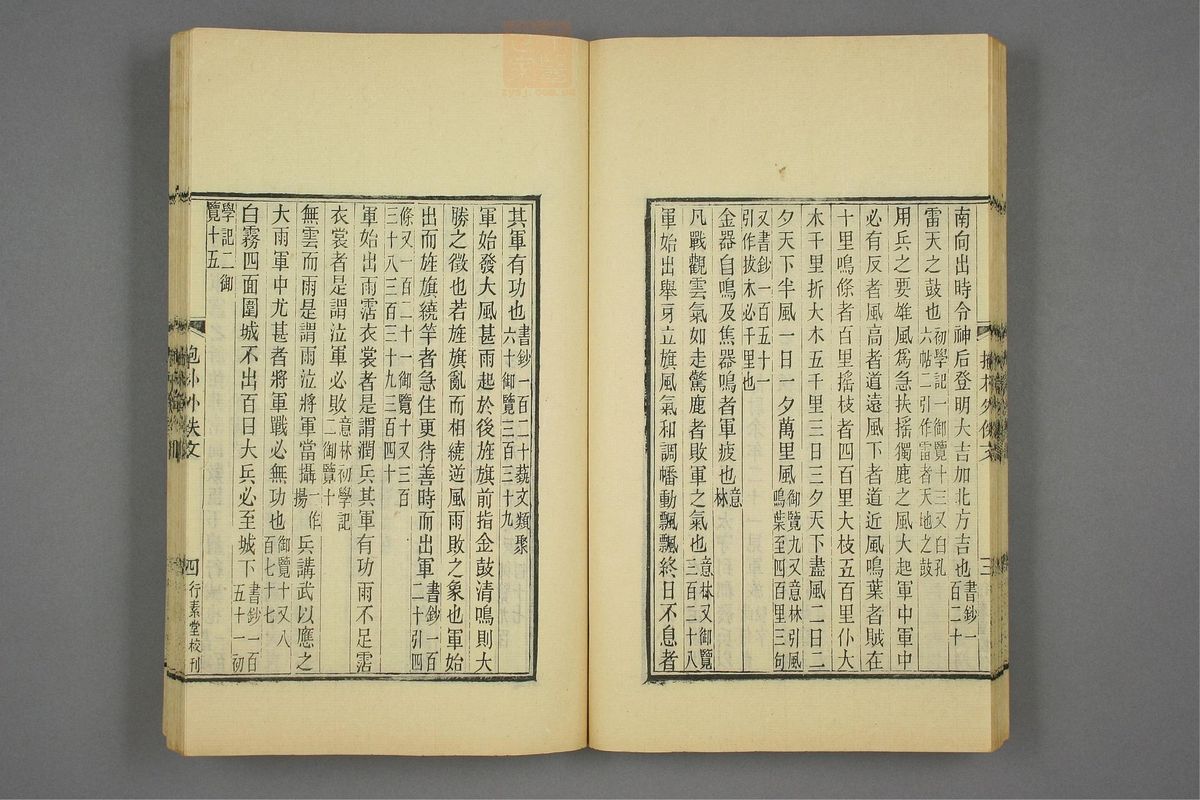 南向出時令神后登明大吉加北方吉也書鈔一百二十
雷天之鼓也初學記一御覽十三又白孔六帖二引作雷者天地之鼓
用兵之要雄風爲急扶搖獨鹿之風大起軍中軍中
必有反者風高者道遠風下者道近風鳴葉者賊在
十里鳴條者百里搖枝者四百里大枝五百里仆大
木千里折大木五千里三日三夕天下盡風二日二
夕天下半風一日一夕萬里風御覽九又意林引風鳴葉至四百里三句
又書鈔一百五十一引作拔木必千里也
金器自鳴及焦器鳴者軍疲也意林
凡戰觀雲氣如走驚鹿者敗軍之氣也意林又御覽三百二十八
軍始出舉牙立旗風氣和調幡動飄飄終日不息者
三
其軍有功也書鈔一百二十蓺文類聚六十御覽三百三十九
軍始發大風甚雨起於後旌旗前指金鼓清鳴則大
勝之徵也若旌旗亂而相繞逆風雨敗之象也軍始
出而旌旗繞竿者急住更待善時而出軍書鈔一百二十引四
條又一百二十一御覽十又三百三十八三百三十九三百四十
軍始出雨霑衣裳者是謂潤兵其軍有功雨不足霑
衣裳者是謂泣軍必敗意林初學記二御覽十
無雲而雨是謂雨泣將軍當攝一作揚兵講武以應之
大雨軍中尤甚者將軍戰必無功也御覽十又八百七十七
白霧四面圍城不出百日大兵必至城下書鈔一百五十一初
學記二御覽十五
四
行素堂校刊